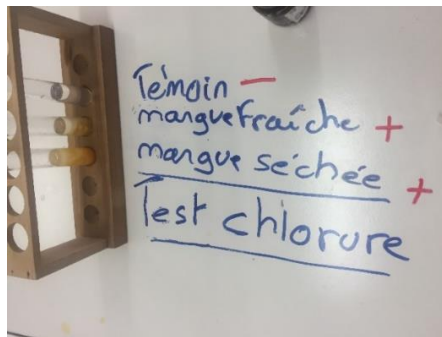 Témoin -
mangue fraîche +
mangue séchée +
Test chlorure